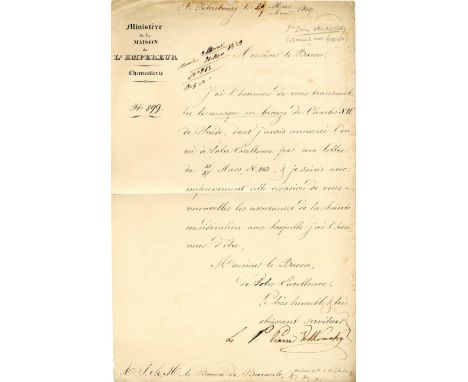 St. Petersbourg le 29 Mars 1839
Ministère
de la
MAISON
de
L'EMPEREUR
Chancellerie
No. 899.
Monsieur le Baron,
J'ai l'honneur de vous transmet-
tre le masque en bronze de Charles XII
de Suède, dont j'avais annoncé l'en-
voi à Votre Excellence par ma lettre
du Mars, No. & je saisis avec
empressement cette occasion de vous
renouveller les assurances de la haute
considération avec laquelle j'ai l'hon-
neur d'être,
Monsieur le Baron,
de Votre Excellence,
le très humble & très
obéissant serviteur
Le Pierre Volkonsky
le Baron de Barante,